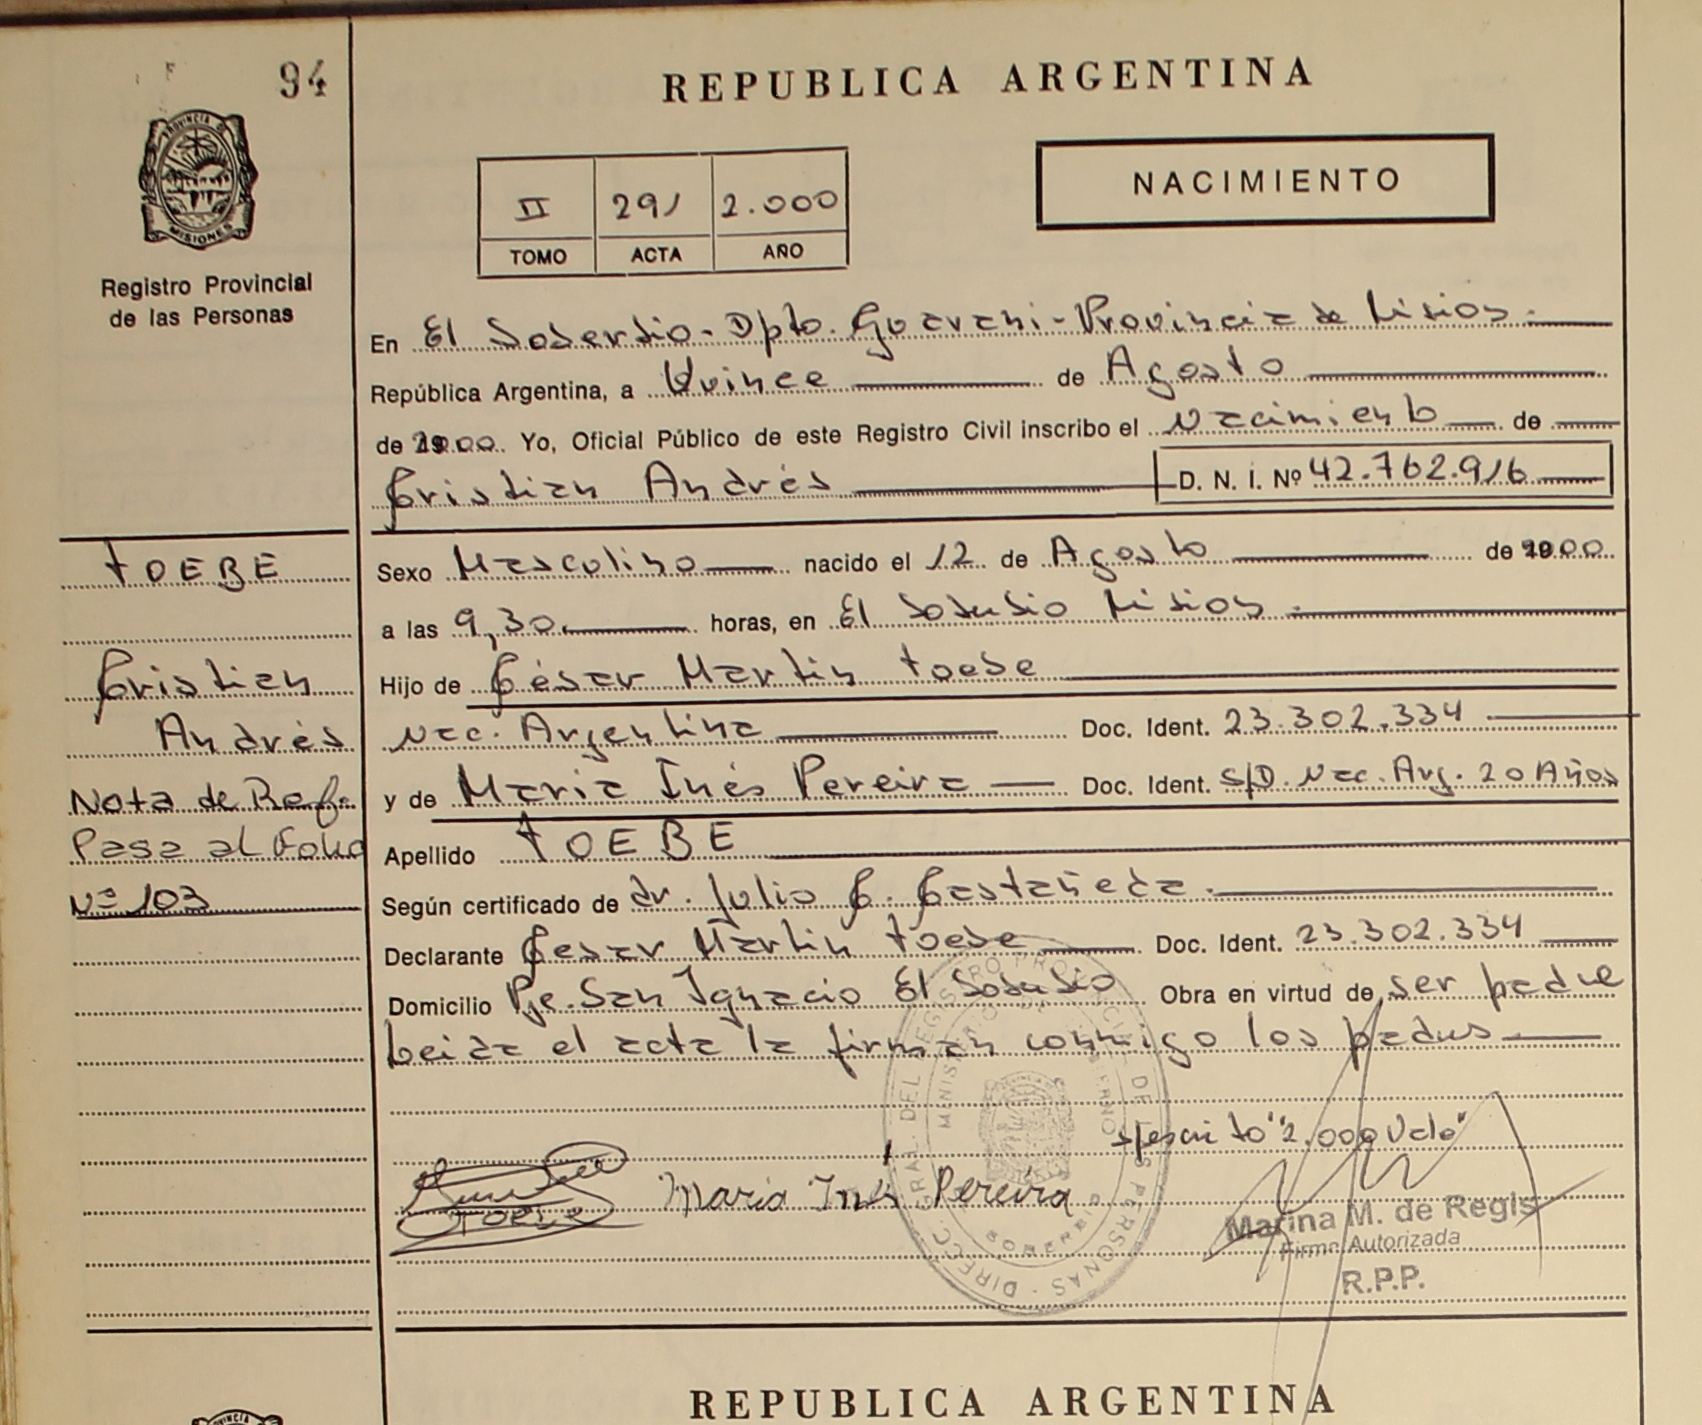 94
REPUBLICA ARGENTINA
PROVINCIA D
MISIONES
Registro Provincial
de las Personas
II 291 2.000
TOMO ACTA AÑO
NACIMIENTO
En El Soberbio - Dpto. Guarani - Provincia de Misiones.
República Argentina, a Quince de Agosto
de 2000. Yo, Oficial Público de este Registro Civil inscribo el Nacimiento de
Cristian Andrés D. N. I. Nº 42.762.916
TOEBE
Cristian
Andrés
Nota de Ref.
Pasa al Folio
Nº 103
Sexo Masculino nacido el 12 de Agosto de 2000
a las 9,30 horas, en El Soberbio Misiones.
Hijo de César Martin Toebe
Nac. Argentina Doc. Ident. 23.302.334
y de Maria Inés Pereira Doc. Ident. S/D. Nac. Arg. 20 Años
Apellido TOEBE
Según certificado de dr. Julio C. Castañeda.
Declarante Cesar Martin Toebe Doc. Ident. 23.302.334
Domicilio Pje. San Ignacio El Soberbio Obra en virtud de ser padre
Leida el acta la firman conmigo los padres
s/escrito "2.000 Vale"
Toebe Maria Inés Pereira
Marina M. de Regis
Firma Autorizada
R.P.P.
DIRECC. GRAL. DEL REGISTRO PROVINCIAL DE LAS PERSONAS
MINISTERIO DE GOBIERNO
REPUBLICA ARGENTINA
PROVINCIA D